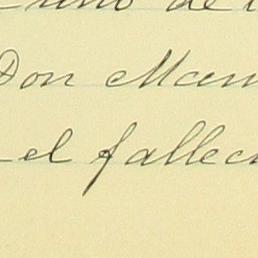 de
Don Man
el fallec